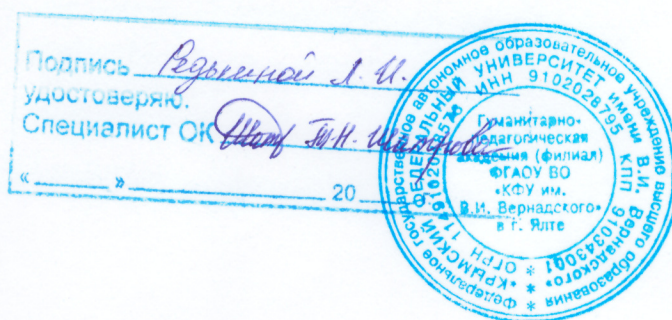 Подпись Редькиной Л. И.
удостоверяю.
Специалист ОК
« » 20
Федеральное государственное автономное образовательное учреждение высшего образования
«КРЫМСКИЙ ФЕДЕРАЛЬНЫЙ УНИВЕРСИТЕТ имени В.И. Вернадского»
ИНН 9102028795 КПП 910343001
ОГРН
Гуманитарно-
педагогическая
академия (филиал)
ФГАОУ ВО
«КФУ им.
В.И. Вернадского»
в г. Ялте